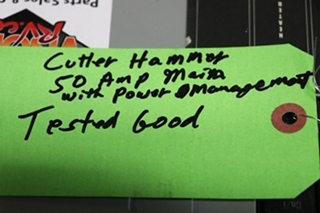 Parts Sales &
Cutler Hammer
50 Amp Main
with Power Management
Tested Good